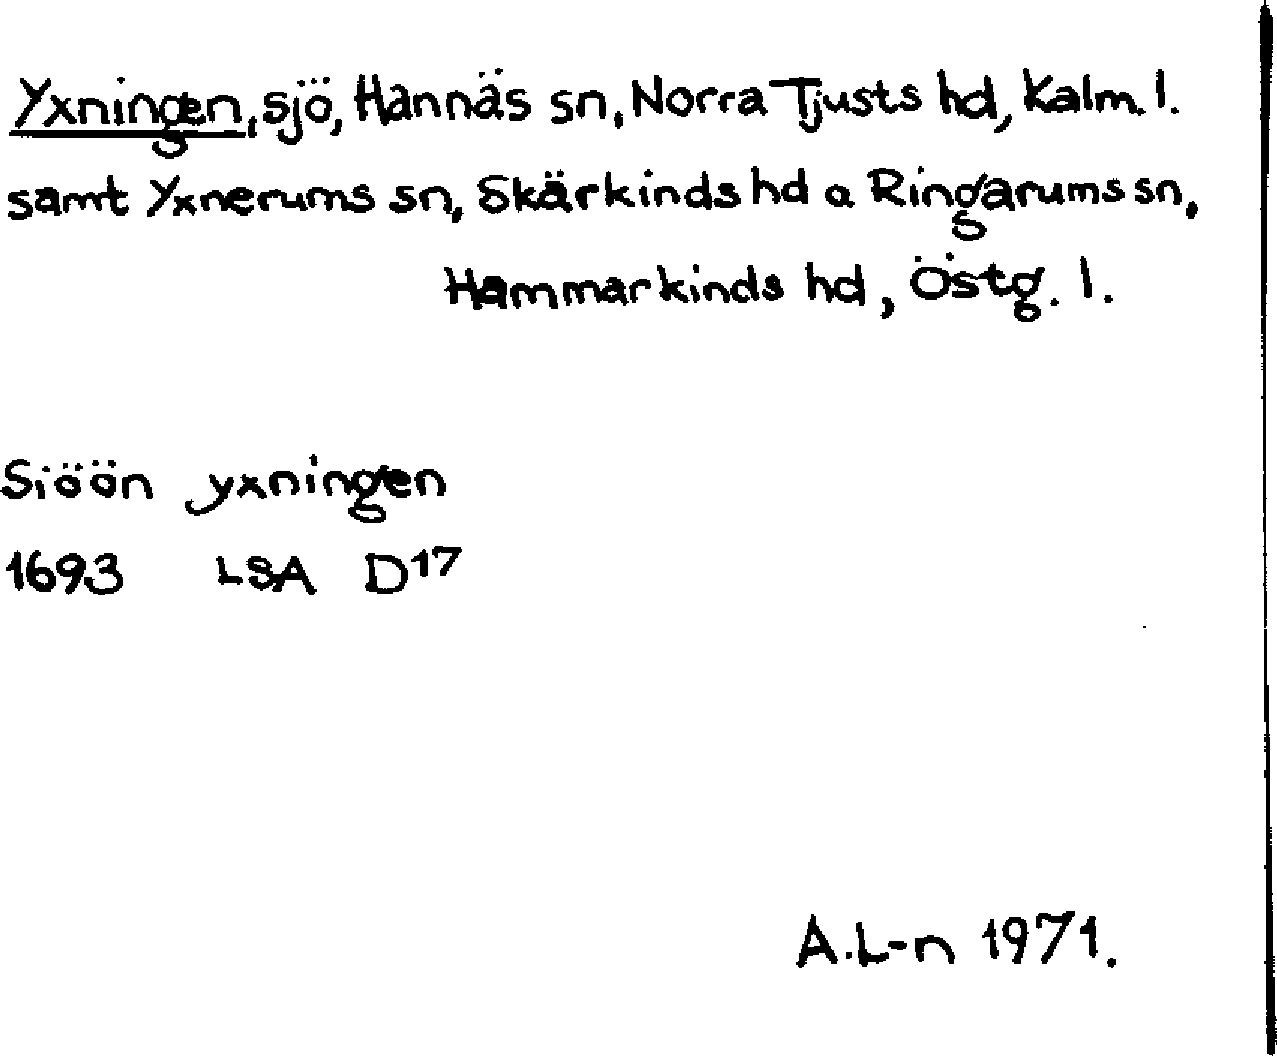 Yxningen, sjö, Hannäs sn, Norra Tjusts hd, Kalm. l.
samt Yxnerums sn, Skärkinds hd o Ringarums sn,
Hammarkinds hd, Östg. l.
Siöön yxningen
1693 LSA D17
A.L-n 1971.